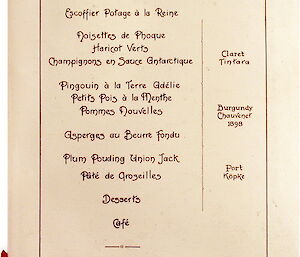 Escoffier Potage à la Reine
Noisettes de Phoque
Haricot Verts
Champignons en Sauce Antarctique
Claret
Tintara
Pingouin à la Terre Adélie
Petits Pois à la Menthe
Pommes Nouvelles
Burgundy
Chauvenet
1898
Asperges au Beurre fondu
Plum Pouding Union Jack
Pâté de Groseilles
Port
Köpke
Desserts
Café